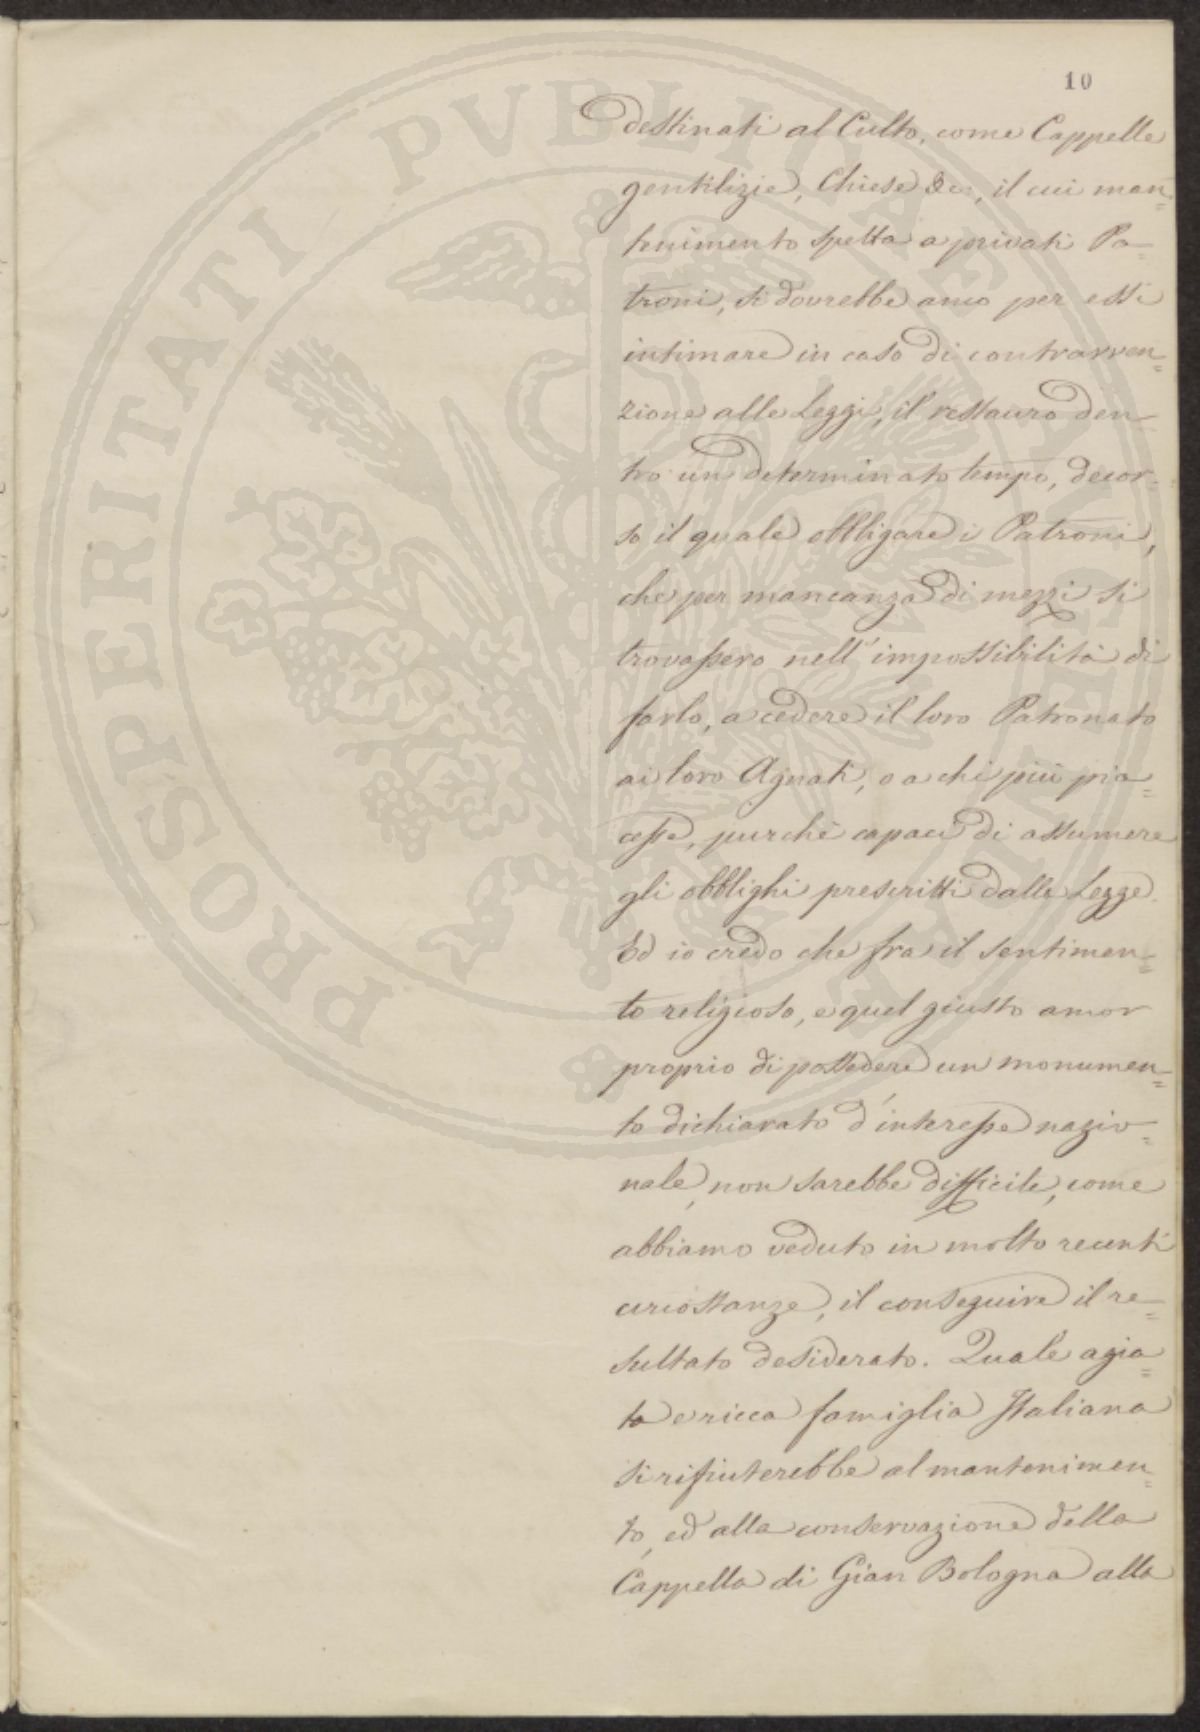 10
destinati al Culto, come Cappelle
gentilizie, Chiese &c:, il cui man=
tenimento spetta a privati Pa=
troni, si dovrebbe anco per essi
intimare in caso di contravven=
zione alle Leggi, il restauro den=
tro un determinato tempo, decor=
so il quale obbligare i Patroni,
che per mancanza di mezzi si
trovassero nell'impossibilità di
farlo, a cedere il loro Patronato
ai loro Agnati, o a chi più pia=
cesse, purchè capaci di assumere
gli obblighi prescritti dalla Legge.
Ed io credo che fra il sentimen=
to religioso, e quel giusto amor
proprio di possedere un monumen=
to dichiarato d'interesse nazio=
nale, non sarebbe difficile, come
abbiamo veduto in molto recenti
circostanze, il conseguire il re=
sultato desiderato. Quale agia=
ta e ricca famiglia Italiana
si rifiuterebbe al mantenimen=
to, ed alla conservazione della
Cappella di Gian Bologna alla
PROSPERITATI PVBLICAE AVGENDAE